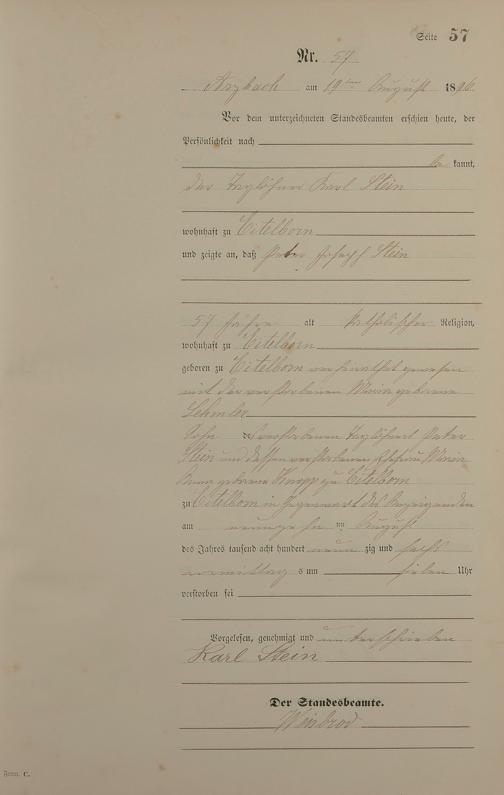 Seite 57
Nr. 57
Arzbach am 19ten August 1896
Vor dem unterzeichneten Standesbeamten erschien heute, der
Persönlichkeit nach
be kannt,
der Taglöhner Karl Stein
wohnhaft zu Eitelborn
und zeigte an, daß Peter Joseph Stein
57 Jahre alt katholischer Religion,
wohnhaft zu Eitelborn
geboren zu Eitelborn verheirathet gewesen
mit der verstorbenen Maria geborene
Sohn des verstorbenen Taglöhners Peter
Stein und dessen verstorbenen Ehefrau Maria
Anna geborene Knopp zu Eitelborn
zu Eitelborn in Gegenwart des Anzeigenden
am neunzehnten August
des Jahres tausend acht hundert neun zig und sechs
vormittag s um sieben Uhr
verstorben sei
Vorgelesen, genehmigt und unterschrieben
Karl Stein
Der Standesbeamte.
Weisbrod
Form. C.